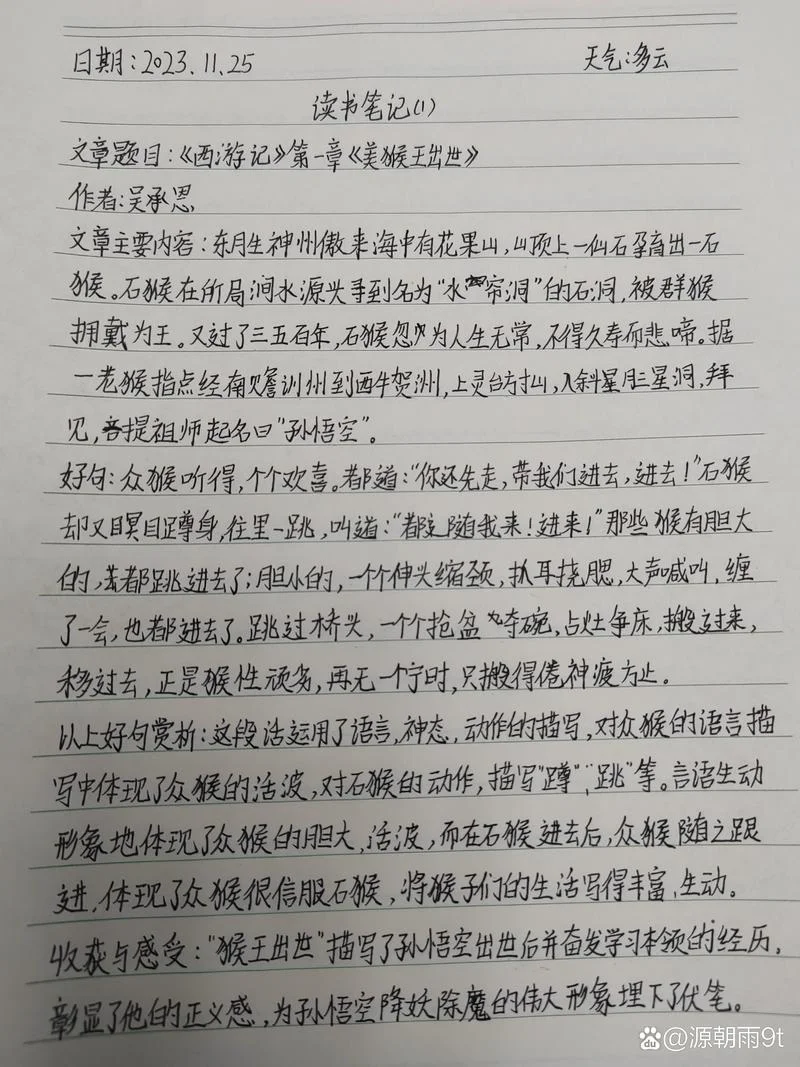 日期:2023.11.25 天气:多云
读书笔记(1)
文章题目:《西游记》第一章《美猴王出世》
作者:吴承恩
文章主要内容:东月生神州傲来海中有花果山,山顶上一仙石孕育出一石
猴。石猴在所局涧水源头寻到名为"水帘洞"的石洞,被群猴
拥戴为王。又过了三五百年,石猴忽为人生无常,不得久寿而悲啼。据
一老猴指点经南赡训州到西牛贺洲,上灵台方寸山,入斜星月三星洞,拜
见,菩提祖师起名曰"孙悟空"。
好句:众猴听得,个个欢喜。都道:"你还先走,带我们进去,进去!"石猴
却又瞑目蹲身,往里一跳,叫道:"都随我来!进来!"那些猴有胆大
的,都跳进去了;胆小的,一个个伸头缩颈,抓耳挠腮,大声喊叫,缠
了一会,也都进去了。跳过桥头,一个个抢盆夺碗,占灶争床,搬过来,
移过去,正是猴性顽劣,再无一个宁时,只搬得倦神疲方止。
以上好句赏析:这段话运用了语言,神态,动作的描写,对众猴的语言描
写中体现了众猴的活波,对石猴的动作,描写"蹲","跳"等。言语生动
形象地体现了众猴的胆大,活波,而在石猴进去后,众猴随之跟
进,体现了众猴很信服石猴,将猴子们的生活写得丰富,生动。
收获与感受:"猴王出世"描写了孙悟空出世后并奋发学习本领的经历,
彰显了他的正义感,为孙悟空降妖除魔的伟大形象埋下了伏笔。
du @源朝雨9t